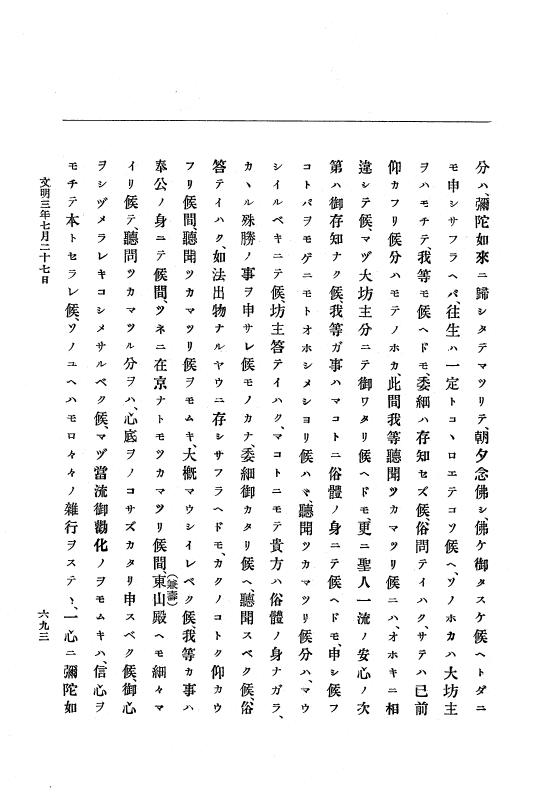 分ハ、彌陀如來ニ歸シタテマツリテ、朝夕念佛シ、佛ケ御タスケ候ヘトダニ
モ申シサフラヘバ、往生ハ一定トコヽロエテコソ候ヘ、ソノホカハ大坊主
ヲハモチテ、我等モ候ヘドモ、委細ハ存知セズ候、俗問テイハク、サテハ已前
仰カフリ候分ハモテノホカ、此間我等聽聞ツカマツリ候ニハ、オホキニ相
違シテ候、マヅ大坊主分ニテ御ワタリ候ヘドモ、更ニ聖人一流ノ安心ノ次
第ハ御存知ナク候、我等ガ事ハマコトニ俗體ノ身ニテ候ヘドモ、申シ候フ
コトバヲモゲニモトオホシメシヨリ候ハヾ、聽聞ツカマツリ候分ハ、マウ
シイルベキニテ候、坊主答テイハク、マコトニモテ貴方ハ俗體ノ身ナガラ、
カヽル殊勝ノ事ヲ申サレ候モノカナ、委細御カタリ候ヘ、聽聞スベク候、俗
答テイハク、如法出物ナルヤウニ存シサフラヘドモ、カクノコトク仰カウ
フリ候間、聽聞ツカマツリ候ヲモムキ、大概マウシイレベク候、我等カ事ハ
奉公ノ身ニテ候間、ツネニ在京ナトモツカマツリ候間、東山殿ヘモ細々マ
(兼壽)
イリ候テ、聽問ツカマツル分ヲハ、心底ヲノコサズカタリ申スベク候、御心
ヲシヅメラレキコシメサルベク候、マヅ當流御勸化ノヲモムキハ、信心ヲ
モチテ本トセラレ候、ソノユヘハモロ々々ノ雜行ヲステヽ、一心ニ彌陀如
文明三年七月二十七日
六九三